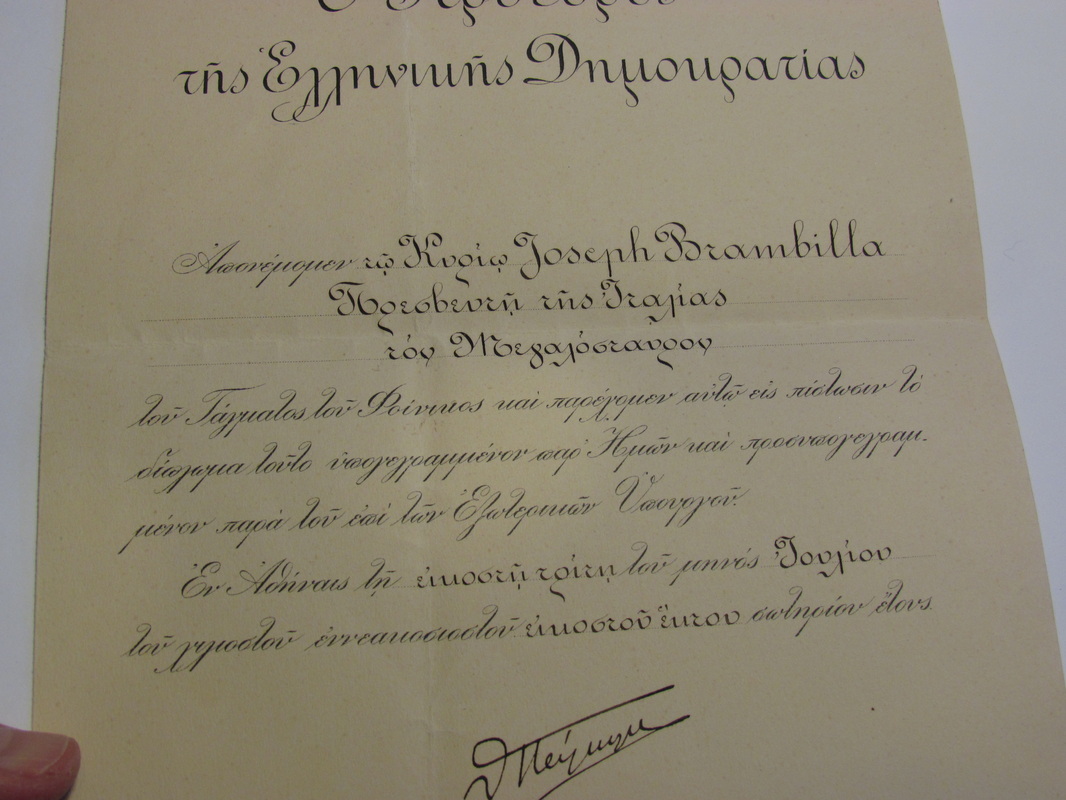 Ὁ Πρόεδρος
τῆς Ἑλληνικῆς Δημοκρατίας
Ἀπονέμομεν τῷ Κυρίῳ Joseph Brambilla
Πρεσβευτῇ τῆς Ἰταλίας
τὸν Μεγαλόσταυρον
τοῦ Τάγματος τοῦ Φοίνικος καὶ παρέχομεν αὐτῷ εἰς πίστωσιν τὸ
δίπλωμα τοῦτο ὑπογεγραμμένον παρ' Ἡμῶν καὶ προσυπογεγραμ-
μένον παρὰ τοῦ ἐπὶ τῶν Ἐξωτερικῶν Ὑπουργοῦ.
Ἐν Ἀθήναις τῇ εἰκοστῇ τρίτῃ τοῦ μηνὸς Ἰουλίου
τοῦ χιλιοστοῦ ἐννεακοσιοστοῦ εἰκοστοῦ ἕκτου σωτηρίου ἔτους.